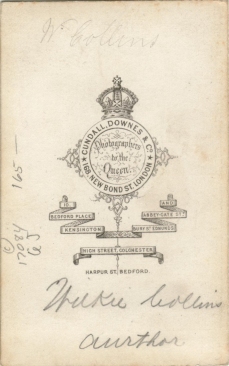 Wᵉ Collins
CUNDALL, DOWNES & Co.
Photographers
to the
Queen
168, NEW BOND ST. LONDON
10 AND
BEDFORD PLACE ABBEY-GATE ST.
KENSINGTON BURY ST EDMUNDS
HIGH STREET, COLCHESTER
HARPUR ST. BEDFORD.
165 —
© 17084
Wilkie Collins
aurthor